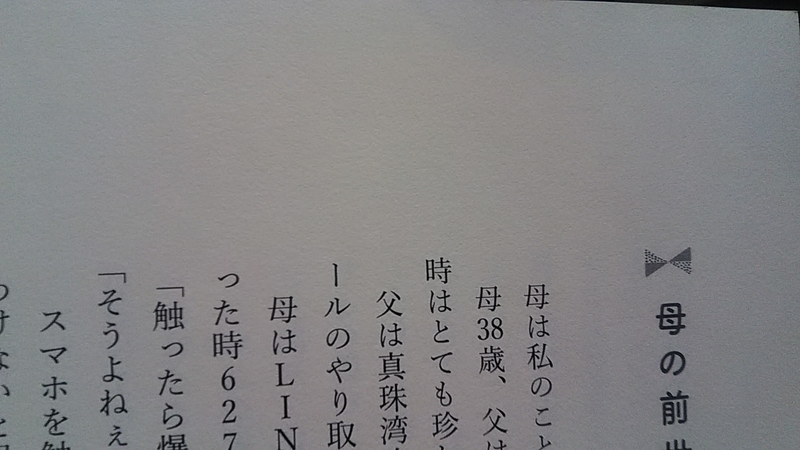 母の前世
母は私のこと
母38歳、父は
時はとても珍し
父は真珠湾
ールのやり取
母はLIN
った時627
「触ったら爆
「そうよねぇ
スマホを触
つけないと